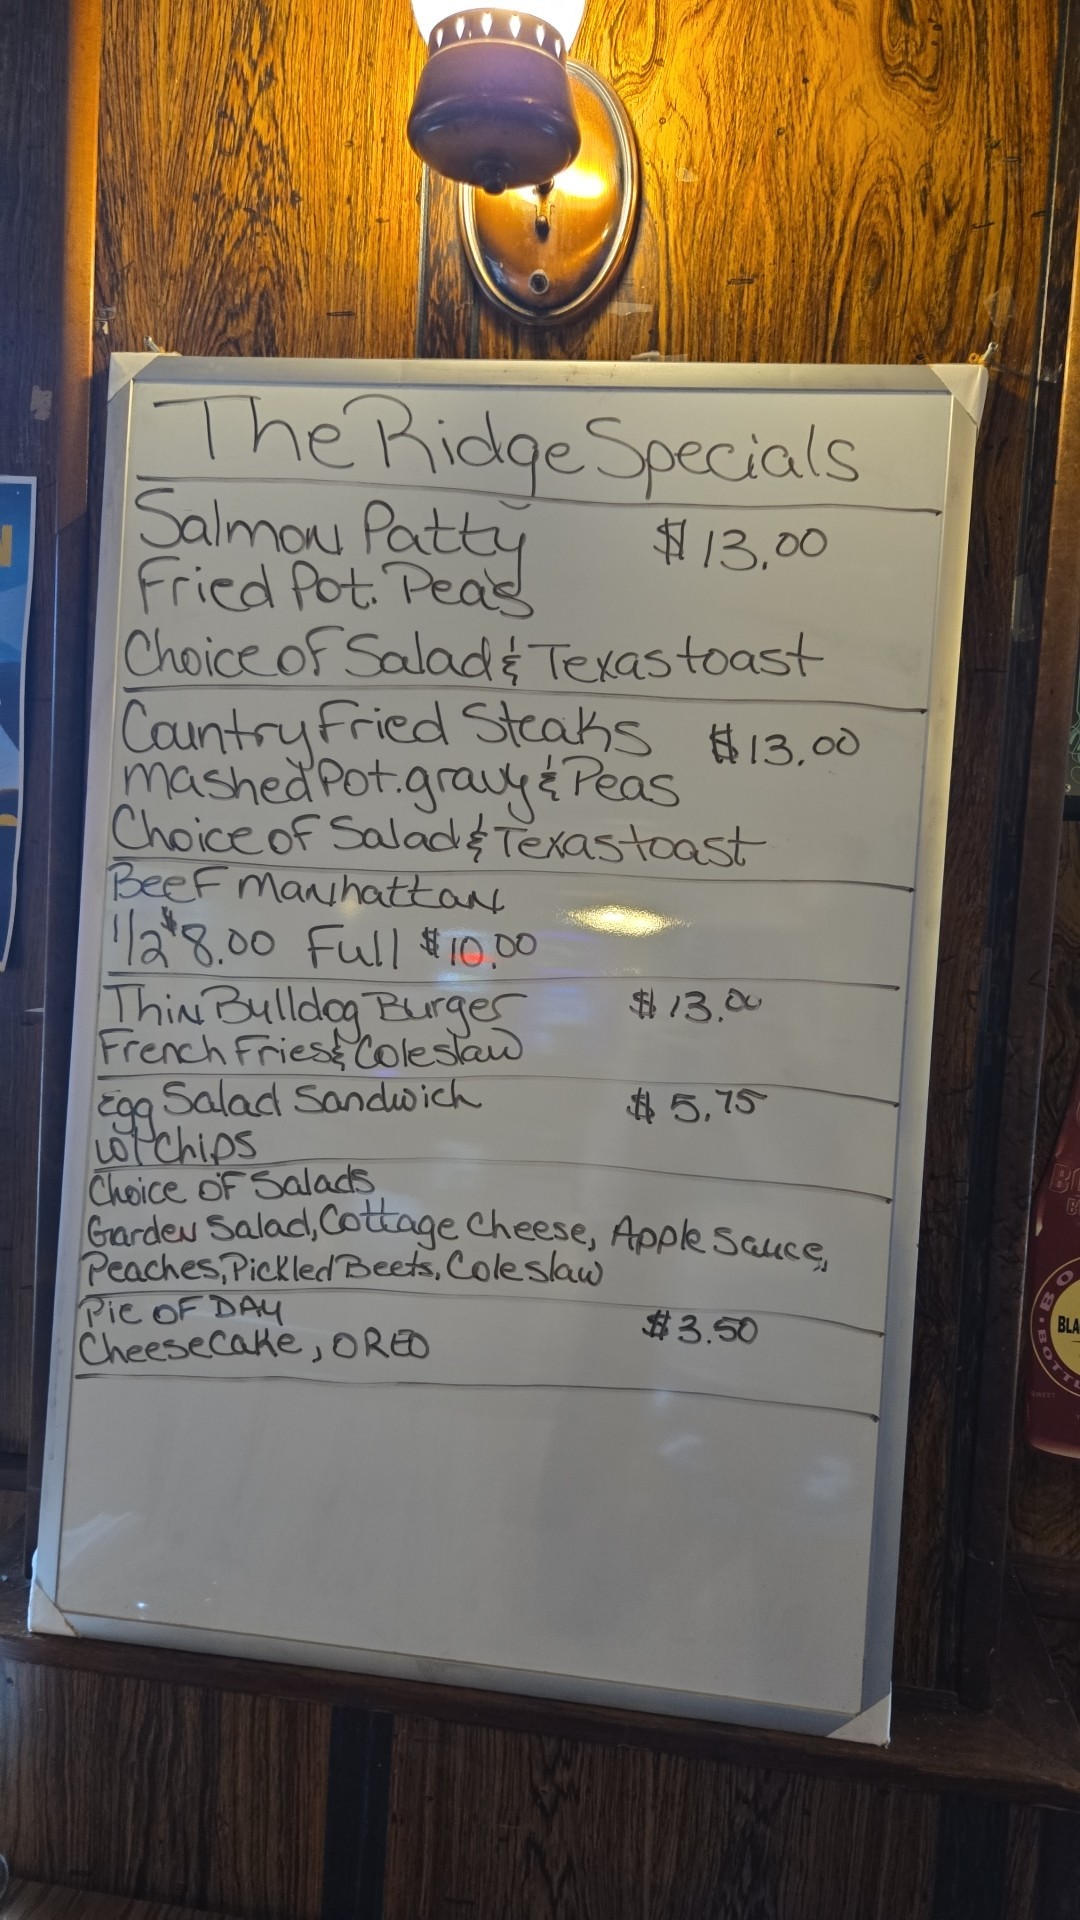 The Ridge Specials
Salmon Patty $13.00
Fried Pot. Peas
Choice of Salad & Texas toast
Country Fried Steaks $13.00
mashed Pot. gravy & Peas
Choice of Salad & Texas toast
Beef Manhattan
1/2 $8.00 Full $10.00
Thin Bulldog Burger $13.00
French Fries & Coleslaw
Egg Salad Sandwich $5.75
w/ Chips
Choice of Salads
Garden Salad, Cottage Cheese, Apple Sauce,
Peaches, Pickled Beets, Coleslaw
Pie OF DAY $3.50
CheeseCake, OREO
BLA